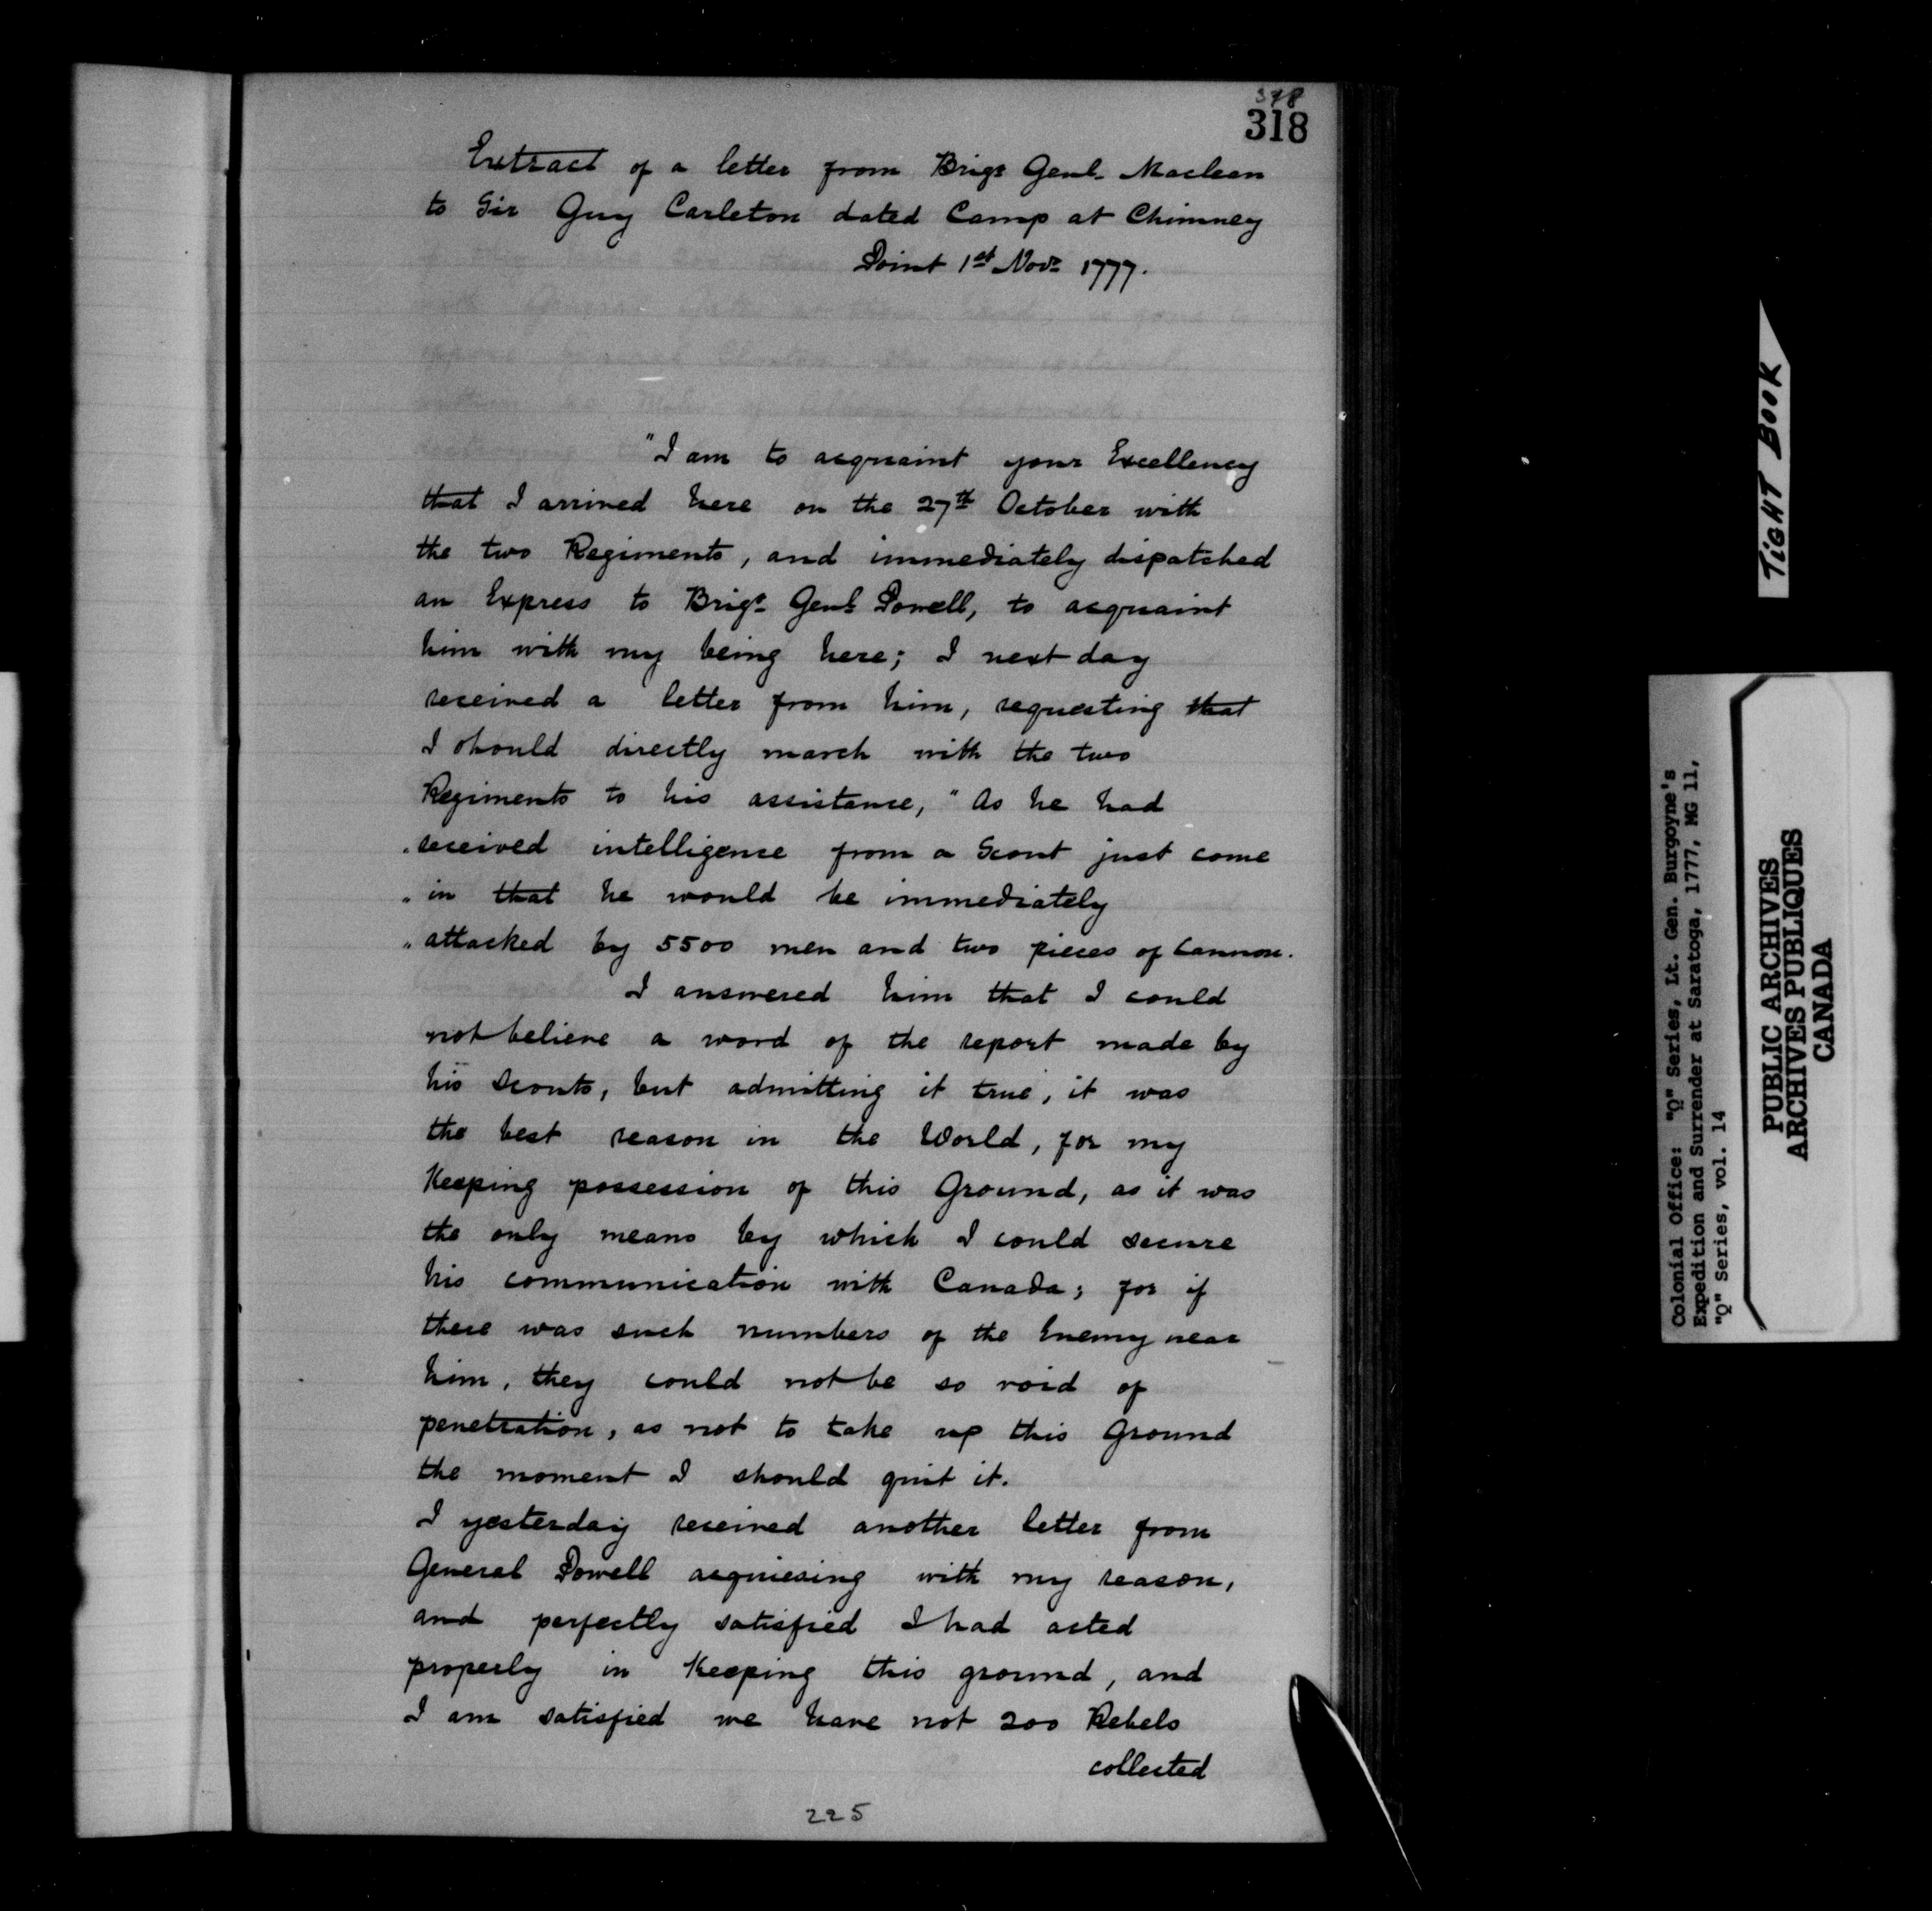 378
318
Extract of a letter from Brigr Genl. Maclean
to Sir Guy Carleton dated Camp at Chimney
Point 1st Novr 1777.
"I am to acquaint your Excellency
that I arrived here on the 27th October with
the two Regiments, and immediately dispatched
an Express to Brigr Genl Powell, to acquaint
him with my being here; I next day
received a letter from him, requesting that
I should directly march with the two
Regiments to his assistance, "As he had
"received intelligence from a Scout just come
"in that he would be immediately
"attacked by 5500 men and two pieces of Cannon.
I answered him that I could
not believe a word of the report made by
his Scouts, but admitting it true, it was
the best reason in the World, for my
Keeping possession of this Ground, as it was
the only means by which I could secure
his communication with Canada; for if
there was such numbers of the Enemy near
him, they could not be so void of
penetration, as not to take up this Ground
the moment I should quit it.
I yesterday received another letter from
General Powell acquiesing with my reason,
and perfectly satisfied I had acted
properly in Keeping this ground, and
I am satisfied we have not 200 Rebels
collected
225
TIGHT BOOK
Colonial Office: "Q" Series, Lt. Gen. Burgoyne's
Expedition and Surrender at Saratoga, 1777, MG 11,
"Q" Series, vol. 14
PUBLIC ARCHIVES
ARCHIVES PUBLIQUES
CANADA